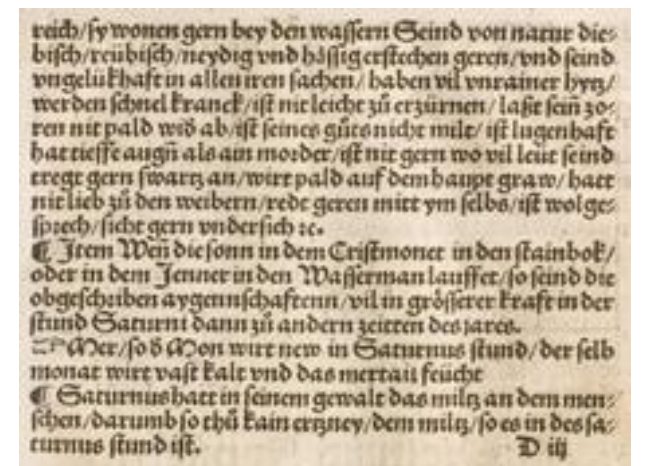 reich/sy wonen gern bey den wassern Seind von natur die⸗
bisch/reübisch/neydig vnd hässig erstechen geren/vnd seind
vngelükhaft in allen iren sachen/haben vil vnrainer hytz/
werden schnel kranck/ist nit leicht zů erzürnen/laßt sein̄ zo⸗
ren nit pald wid̄ ab/ist seines gůts nicht milt/ist lugenhaft
hat tieffe augn̄ als ain morder/ist nit gern wo vil leüt seind
tregt gern swartz an/wirt pald auf dem haupt graw/hatt
nit lieb zů den weibern/redt geren mitt ym selbs/ist wol ge⸗
sprech/sicht gern vndersich ⁊c.
¶ Item Wen̄ die sonn in dem Cristmonet in den stainbok/
oder in dem Jenner in den Wasserman lauffet/so seind die
obgeschriben aygennschaftenn/vil in grösserer kraft in der
stund Saturni dann zů andern zeitten des iares.
Mer/so d̄ Mon wirt new in Saturnus stund/der selb
monat wirt vast kalt vnd das mertail feücht
¶ Saturnus hatt in seinem gewalt das miltz an dem men⸗
schen/darumb so thů kain ertzney/dem miltz/so es in des sa⸗
turnus stund ist. D iij